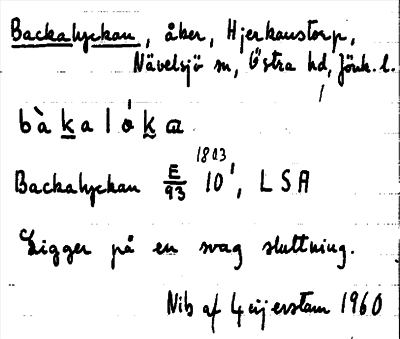 Backalyckan, åker, Hjerkanstorp,
Nävelsjö sn, Östra hd, Jönk. l.
bàkalókα
1803
Backalyckan E/93 10', LSA
Ligger på en svag sluttning.
Nils af 1960